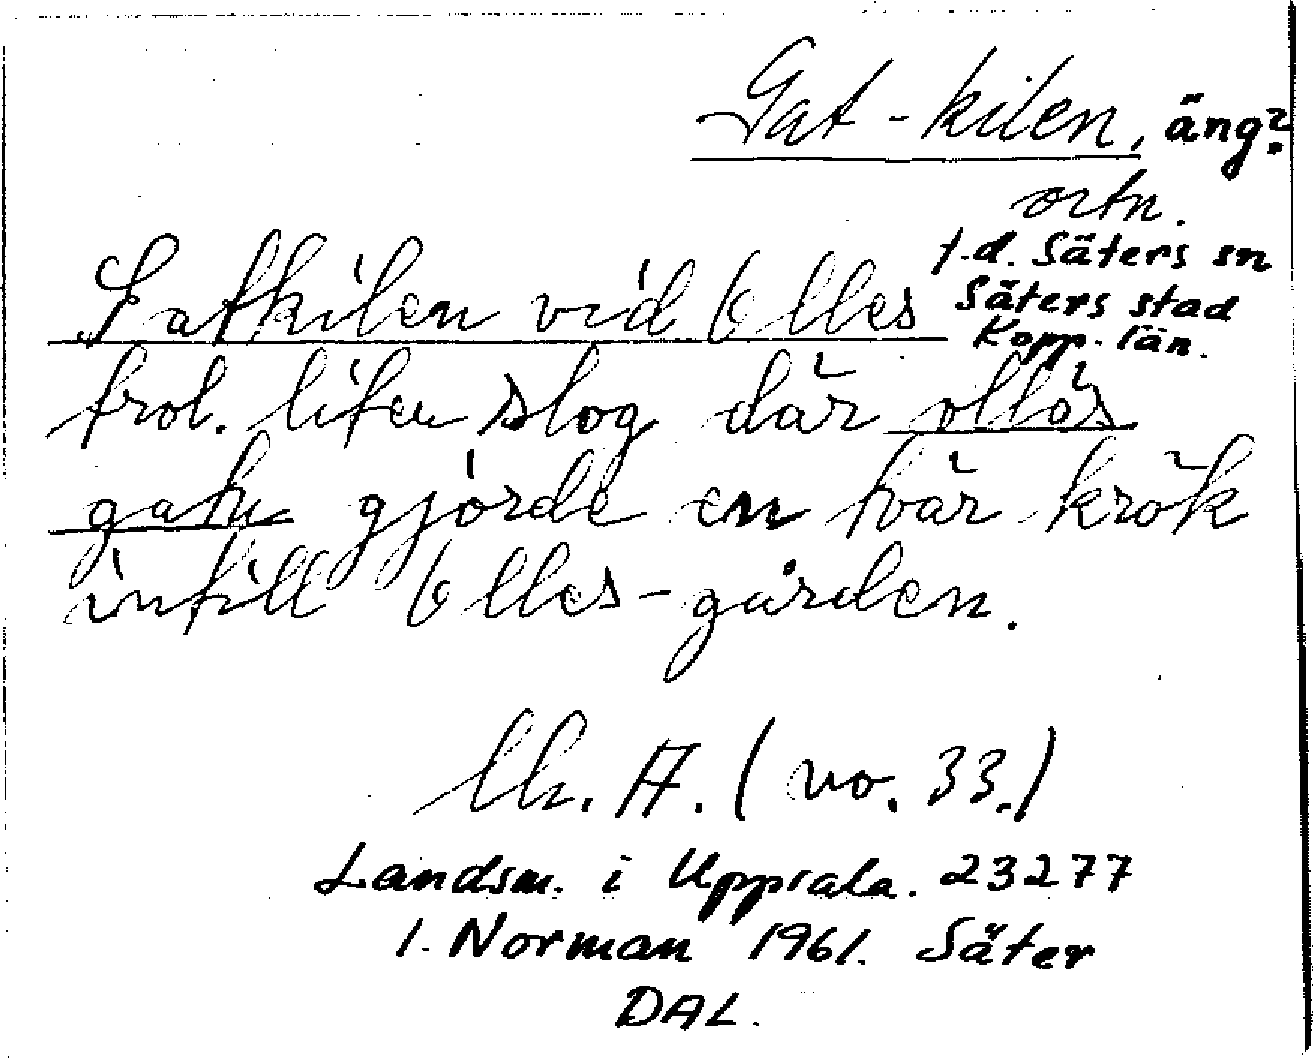 Gat-kilen, äng?
ortn.
f.d. Säters sn
Säters stad
Kopp. län.
Gatkilen vid Olles
trol. liten slog där ollás
gatu gjorde en tvär krök
intill Olles-gården.
A. (no. 33.)
Landsm. i Uppsala. 23277
I. Norman 1961. Säter
DAL.